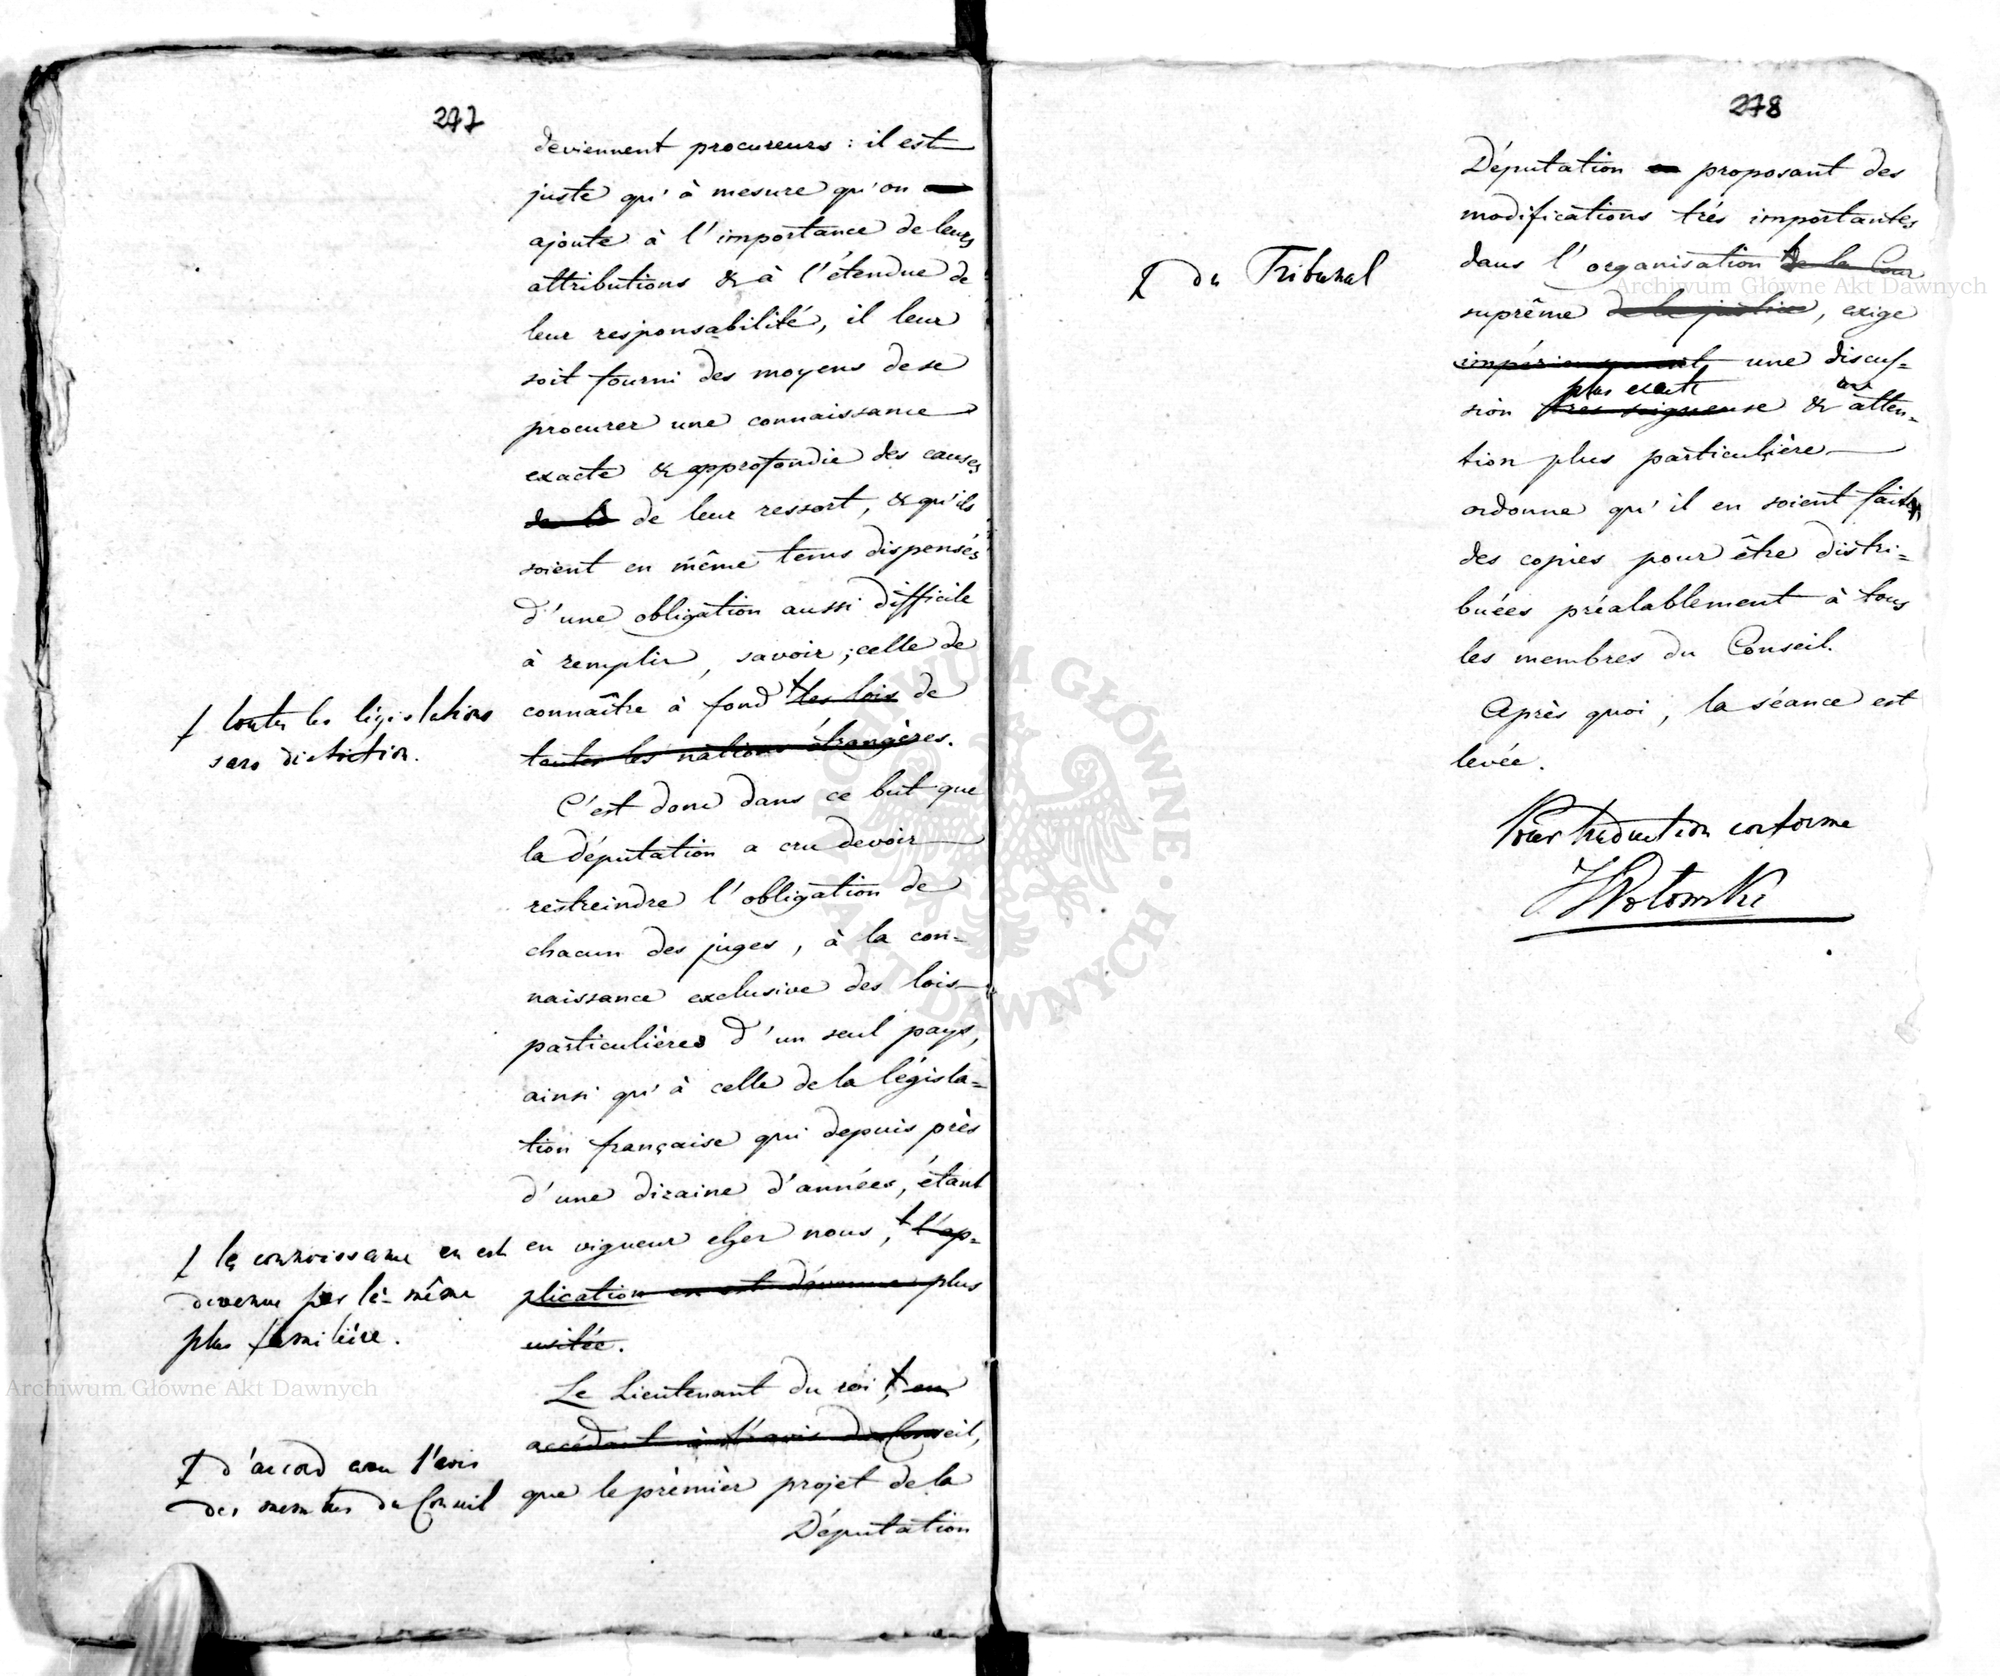 277
deviennent procureurs : il est
juste qu'à mesure qu'on
ajoute à l'importance de leurs
attributions & à l'étendue de
leur responsabilité, il leur
soit fourni des moyens de se
procurer une connaissance
exacte & approfondie des causes
de la de leur ressort, & qu'ils
soient en même tems dispensés
d'une obligation aussi difficile
à remplir, savoir ; celle de
connaître à fond les lois de
toutes les nations étrangères.
toutes les législations
sans distinction.
C'est donc dans ce but que
la députation a cru devoir
restreindre l'obligation de
chacun des juges, à la con=
naissance exclusive des lois
particulières d'un seul pays,
ainsi qu'à celle de la législa=
tion française qui depuis près
d'une dizaine d'années, étant
en vigueur chez nous, l'ap=
plication en est devenue plus
usitée.
la connoissance en est
devenue par là-même
plus familière.
Le Lieutenant du roi, en
accédant à l'avis du Conseil,
que le prémièr projet de la
Députation
d'accord avec l'avis
des membres du Conseil
278
Députation en proposant des
modifications très importantes
dans l'organisation de la Cour
suprême de la justice, exige
du Tribunal
impérieusement une discus=
plus exacte
sion très soigneuse & une atten=
tion plus particulière
ordonne qu'il en soient faites
des copies pour être distri=
buées préalablement à tous
les membres du Conseil.
Après quoi, la séance est
levée.
Pour traduction conforme
Archiwum Główne Akt Dawnych
Archiwum Główne Akt Dawnych
ARCHIWUM GŁÓWNE AKT DAWNYCH